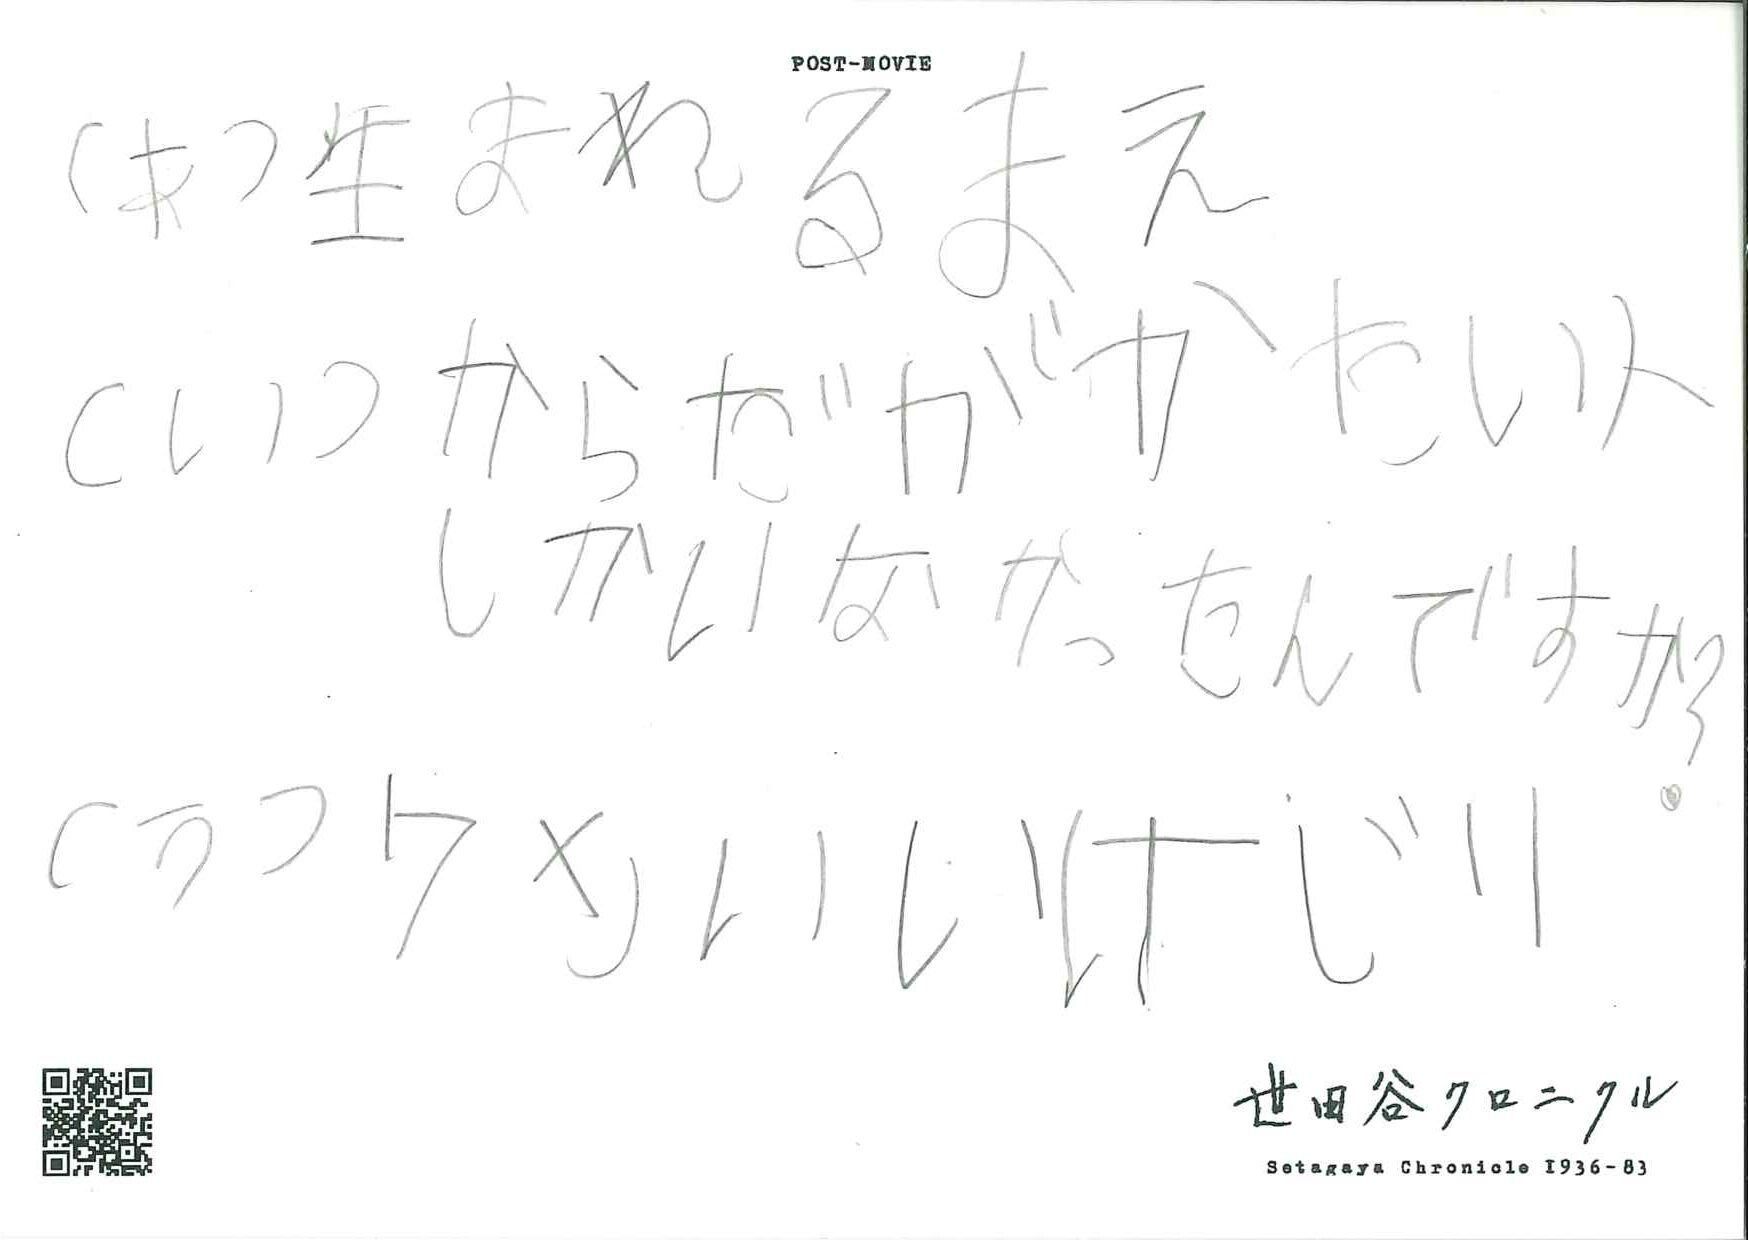 POST-MOVIE
(あ) 生まれるまえ
(い) からだがかたい人
しかいなかったんですか?
(う) 7さい いけじり
世田谷クロニクル
Setagaya Chronicle 1936-83